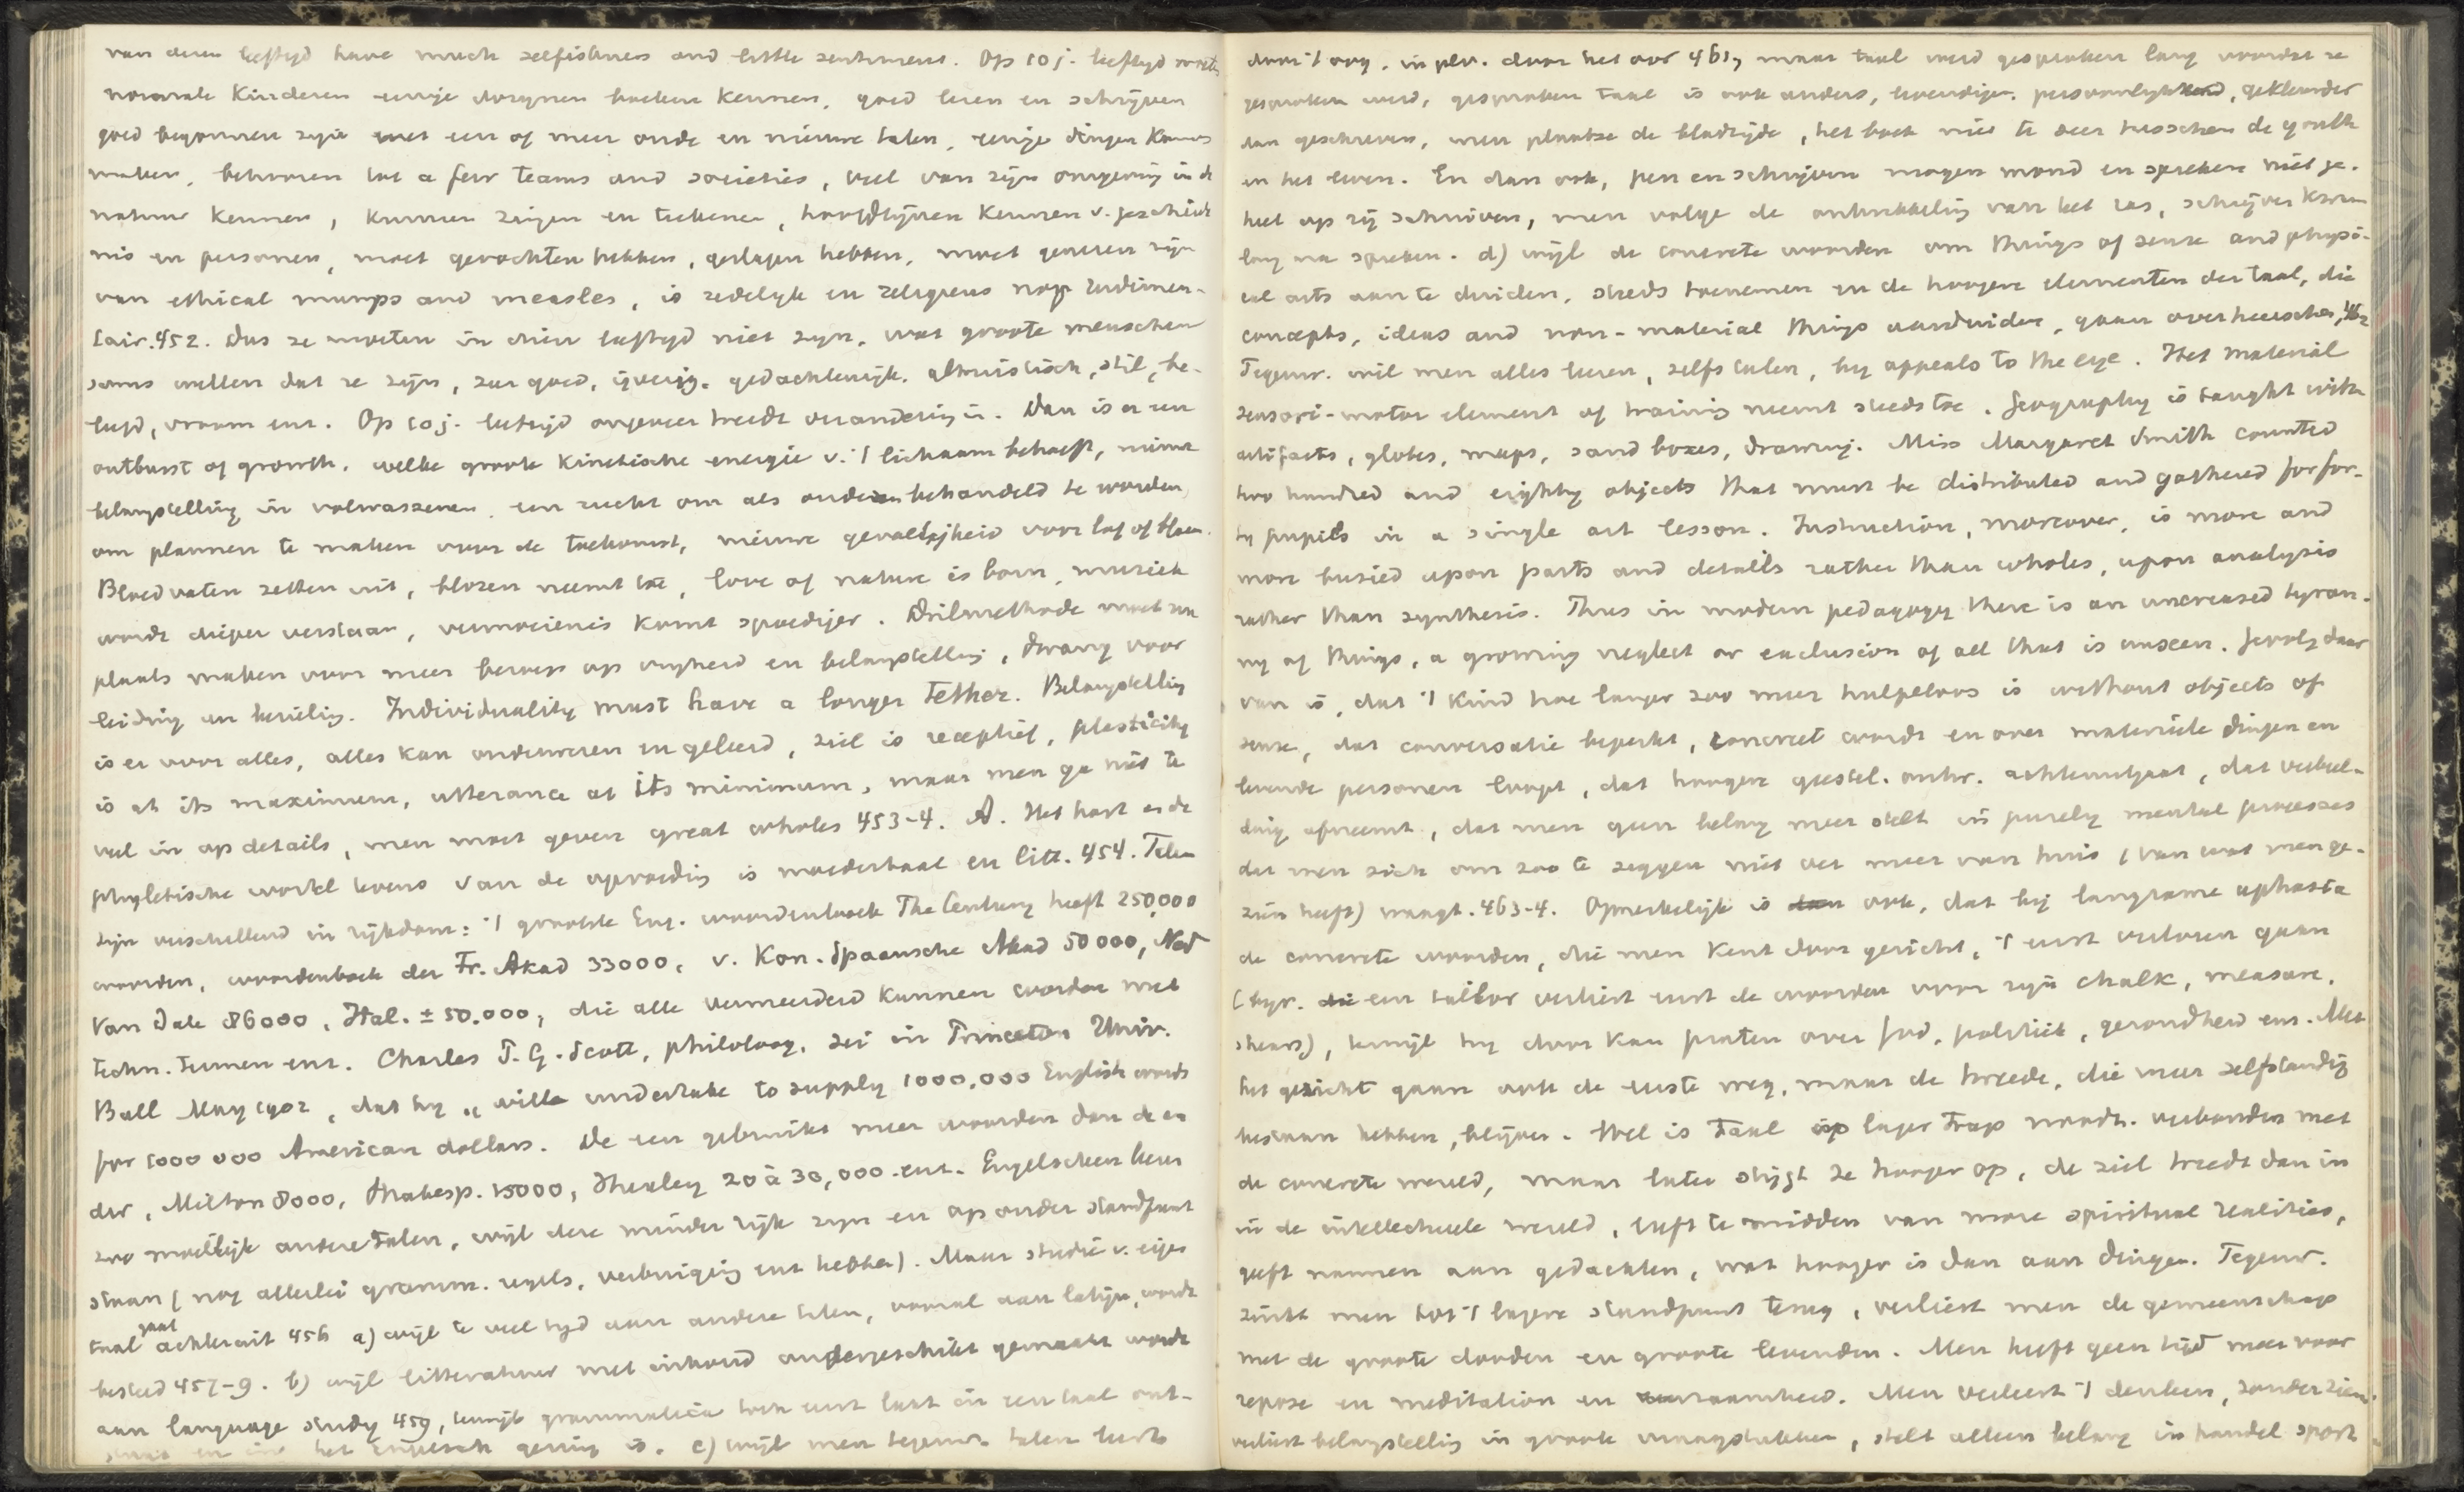 van dezen leeftijd have much selfishness and little sentiment. Op 10 j. leeftijd moeten
normale kinderen eenige dozijnen boeken kennen, goed lezen en schrijven
goed begonnen zijn met een of meer oude en nieuwe talen, eenige dingen kunnen
maken, behooren tot a few teams and societies, veel van zijn omgeving in de
natuur kennen, kunnen zingen en teekenen, hoofdlijnen kennen v. geschiede
nis en personen, moet gevochten hebben, geslagen hebben, moet genezen zijn
van ethical mumps and measles, is zedelijk en religieus nog rudimen-
tair. 452. Dus ze moeten in dien leeftijd niet zijn, wat groote menschen
soms willen dat ze zijn, zeer goed, ijverig, gedachtenrijk, altruistisch, stil, be-
leefd, vroom enz. Op 10 j. leeftijd ongeveer treedt verandering in. Dan is er een
outburst of growth, welke groote kinetische energie v. 't lichaam behoeft, nieuwe
belangstelling in volwassenen, een zucht om als ouderen behandeld te worden,
om plannen te maken voor de toekomst, nieuwe gevoeligheid voor lof of blaam.
Bloedvaten zetten uit, blozen neemt toe, love of nature is born, muziek
wordt dieper verstaan, vermoeienis komt spoediger. Drilmethode moet nu
plaats maken voor meer beroep op vrijheid en belangstelling, dwang voor
leiding en bezieling. Individuality must have a longer tether. Belangstelling
is er voor alles, alles kan onderwezen en geleerd, ziel is receptief, plasticity
is at its maximum, utterance at its minimum, maar men ga niet te
veel in op details, men moet geven great wholes 453-4. A. Het hart en de
phyletische wortel tevens van de opvoeding is moedertaal en litt. 454. Talen
zijn verschillend in rijkdom: 't grootste Eng. woordenboek The Century heeft 250,000
woorden, woordenboek der Fr. Akad 33000, v. Kon. Spaansche Akad 50000, Ned
Van Dale 86000, Ital. ± 50.000, die alle vermeerderd kunnen worden met
techn. termen enz. Charles P. G. Scott, philoloog, zei in Princeton Univ.
Bull May 1902, dat hij „ wille undertake to supply 1000.000 English words
for 1000 000 American dollars. De een gebruikt meer woorden dan de an
der, Milton 8000, Shakesp. 15000, Huxley 20 à 30,000. enz. Engelschen leeren
zoo moeilijk andere talen, wijl deze minder rijk zijn en op ander standpunt
staan (nog allerlei gramm. regels, verbuiging enz hebben). Maar studie v. eigen
taal gaat achteruit 456 a) wijl te veel tijd aan andere talen, vooral aan latijn, wordt
besteed 457-9. b) wijl litteratuur met inhoud ondergeschikt gemaakt wordt
aan language study 459, terwijl grammatica toch eerst laat in een taal ont-
staat en in het engelsch gering is. c) wijl men tegenw. talen leert
door 't oog, in plv. door het oor 461, maar taal werd gesproken lang voordat ze
geschreven werd, gesproken taal is ook anders, levendiger, persoonlijker, gekleurder
dan geschreven, men plaatse de bladzijde, het boek niet te zeer tusschen de youth
en het leven. En dan ook, pen en schrijven mogen mond en spreken niet ge-
heel op zij schuiven, men volge de ontwikkeling van het ras, schrijven kwam
lang na spreken. d) wijl de concrete woorden om things of sense and physi-
cal acts aan te duiden, steeds toenemen en de hoogere elementen der taal, die
concepts, ideas and non-material things aanduiden, gaan overheerschen, 462
Tegenw. wil men alles leeren, zelfs talen, by appeals to the eye. Het material
sensori-motor element of training neemt steeds toe. Geography is taught with
artifacts, globes, maps, sand boxes, drawing. Miss Margaret Smith counted
two hundred and eighty objects that must be distributed and gathered for for-
ty pupils in a single art lesson. Instruction, moreover, is more and
more busied upon parts and details rather than wholes, upon analysis
rather than synthesis. Thus in modern pedagogy there is an increased tyran-
ny of things, a growing neglect or exclusion of all that is unseen. Gevolg daar
van is, dat 't kind hoe langer zoo meer hulpeloos is without objects of
sense, dat conversatie beperkt, concreet wordt en over materiele dingen en
levende personen loopt, dat hoogere geestel. ontw. achteruitgaat, dat verbeel-
ding afneemt, dat men geen belang meer stelt in purely mental processes
dat men zich om zoo te zeggen niet ver meer van huis (van wat men ge-
zien heeft) waagt. 463-4. Opmerkelijk is ook, dat bij langzame aphasia
de concrete woorden, die men kent door gezicht, 't eerst verloren gaan
(bijv. een tailor verliest eerst de woorden voor zijn chalk, measure,
shears), terwijl hij door kan praten over God, politiek, gezondheid enz. Met
het gezicht gaan ook de eerste weg, maar de tweede, die meer zelfstandig
bestaan hebben, blijven. Wel is taal op lager trap noodz. verbonden met
de concrete wereld, maar later stijgt ze hooger op, de ziel treedt dan in
in de intellectueele wereld, leeft te midden van more spiritual realities,
geeft namen aan gedachten, wat hooger is dan aan dingen. Tegenw.
zinkt men tot 't lagere standpunt terug, verliest men de gemeenschap
met de groote dooden en groote levenden. Men heeft geen tijd meer voor
repose en meditation en eenzaamheid. Men verleert 't denken, zonder zien,
verliest belangstelling in groote vraagstukken, stelt alleen belang in handel sport